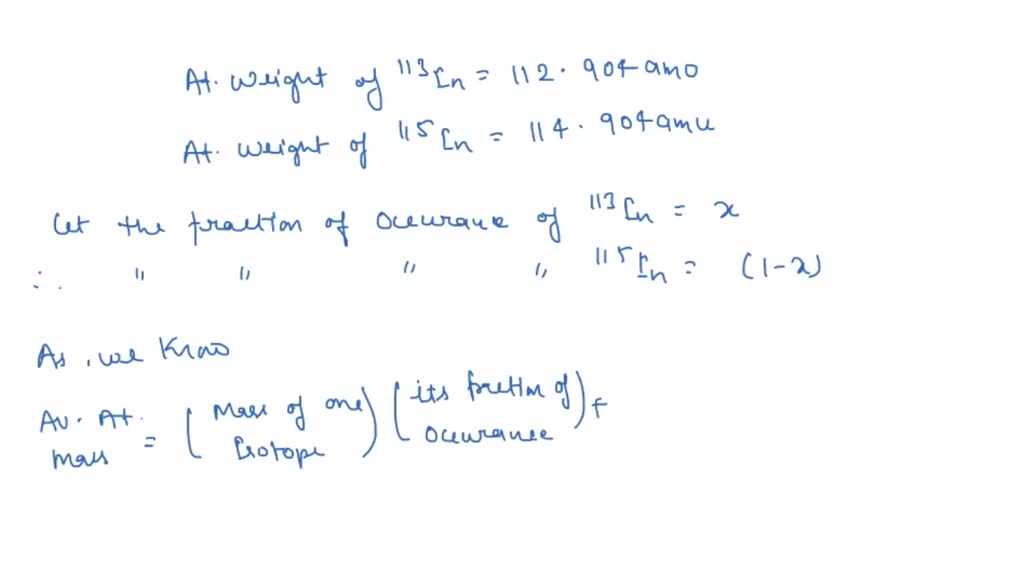 At. weight of ¹¹³In = 112.904 amu
At. weight of ¹¹⁵In = 114.904 amu
Let the fraction of occurance of ¹¹³In = x
∴ " " " " ¹¹⁵In = (1-x)
As, we know
Av. At. mass = (Mass of one Isotope) (its fraction of occurance) +